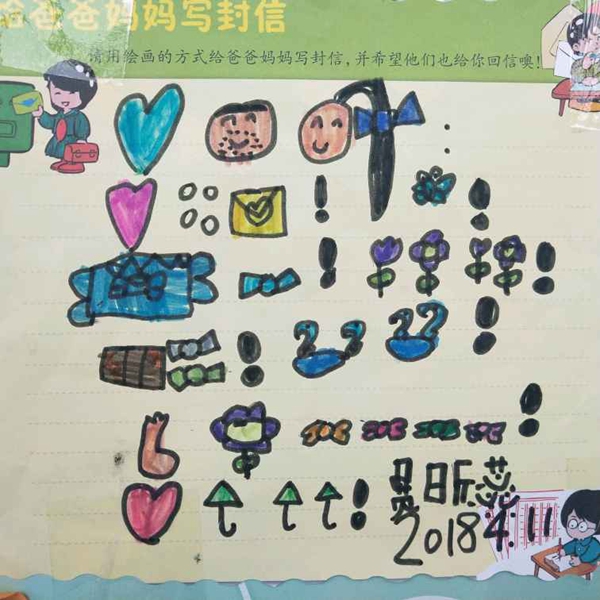 给爸爸妈妈写封信
请用绘画的方式给爸爸妈妈写封信，并希望他们也给你回信噢！
昕蕊
2018.4.11